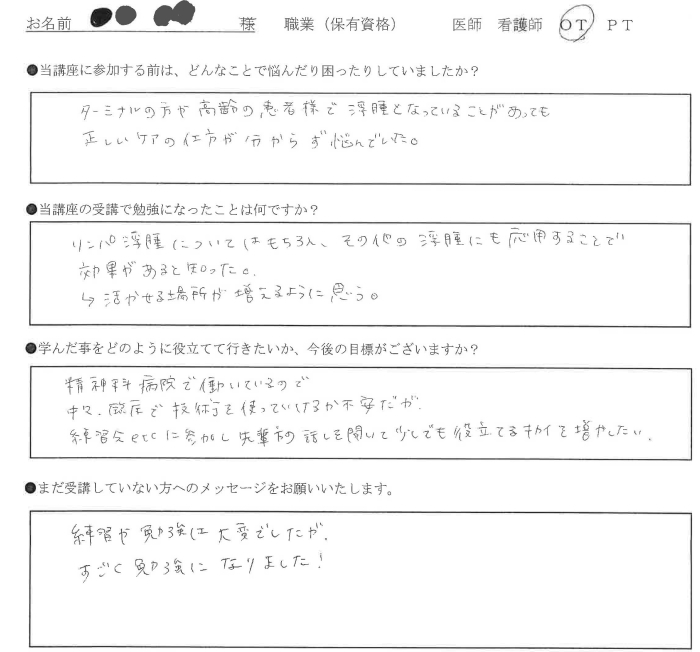 お名前 様 職業（保有資格） 医師 看護師 OT PT
●当講座に参加する前は、どんなことで悩んだり困ったりしていましたか？
ターミナルの方や高齢の患者様で浮腫となっていることがあっても
正しいケアの仕方が分からず悩んでいた。
●当講座の受講で勉強になったことは何ですか？
リンパ浮腫についてはもちろん、その他の浮腫にも応用することで
効果があると知った。
↳ 活かせる場所が増えるように思う。
●学んだ事をどのように役立てて行きたいか、今後の目標がございますか？
精神科病院で働いているので
中々、臨床で技術を使っていけるか不安だが、
練習会etcに参加し先輩方の話しを聞いて少しでも役立てるカイを増やしたい。
●まだ受講していない方へのメッセージをお願いいたします。
練習や勉強は大変でしたが、
すごく勉強になりました！